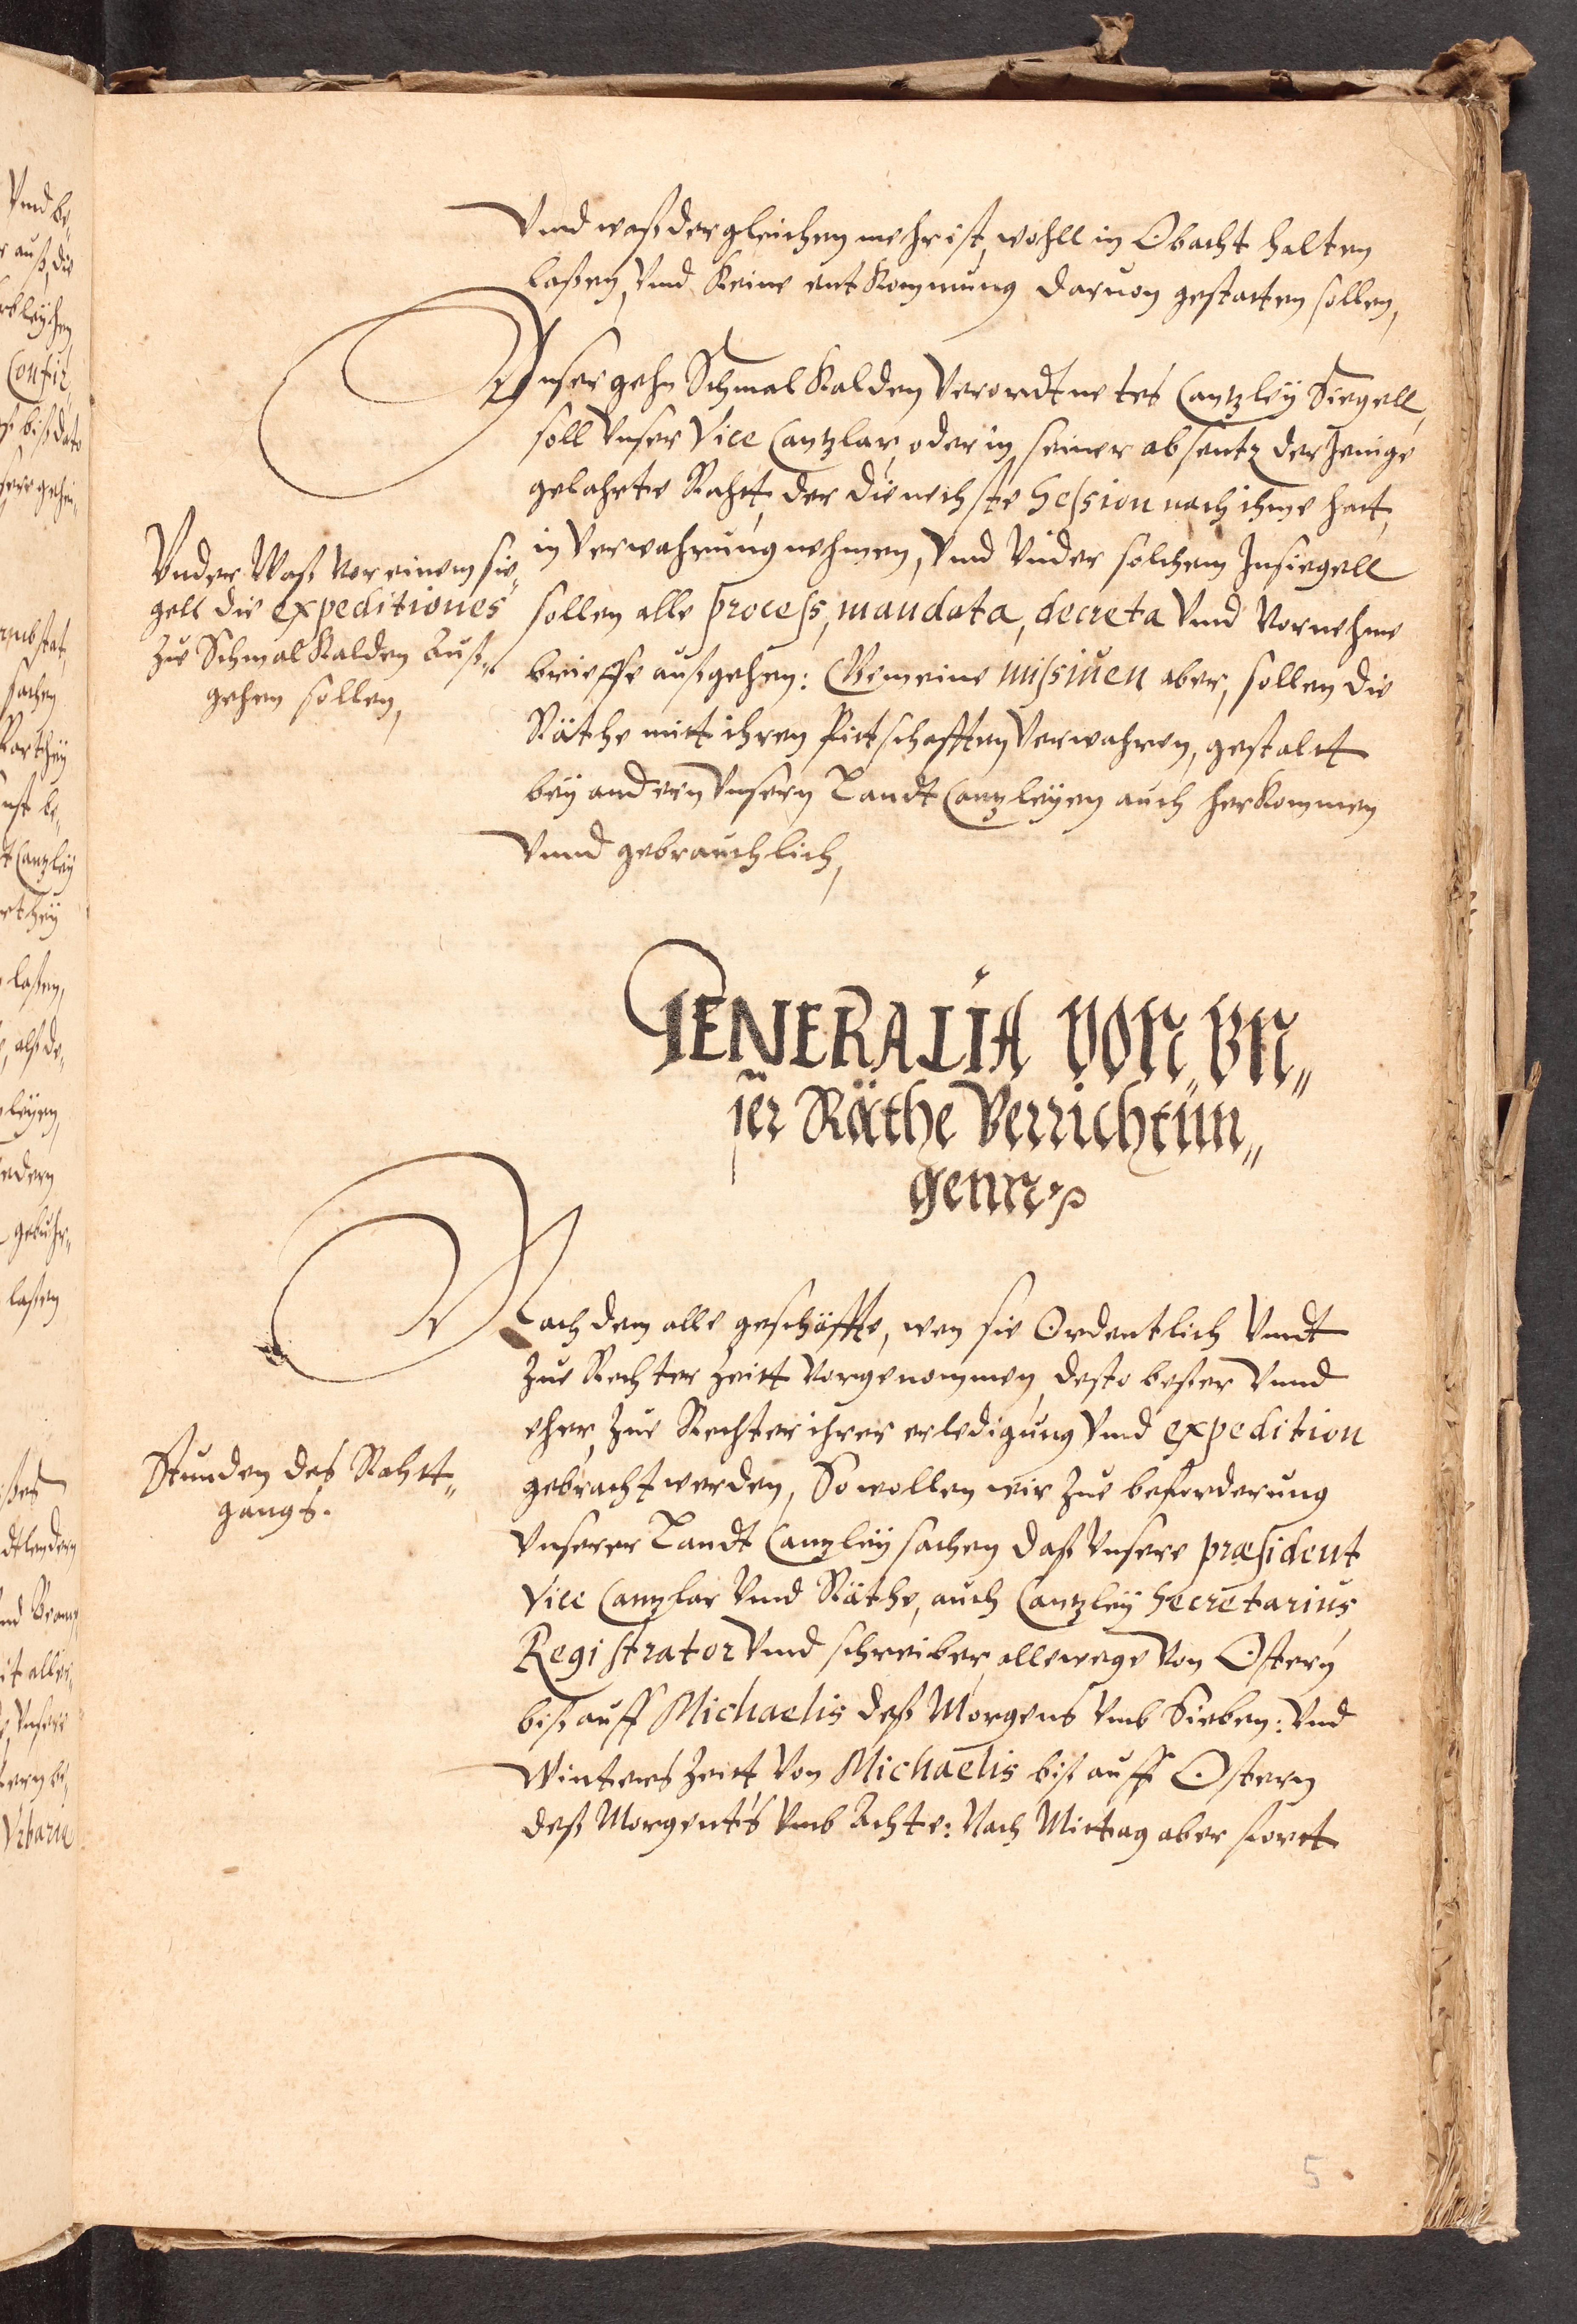 Vnd waß dergleichen mehr ist, wohll in Obacht halten
laßen, Vnd Keine entKommung daruon gestatten sollen,
Vnser gehn SchmalKalden Verordtnetes Cantzley Siegell,
soll Vnser Vice Cantzlar, oder in seiner absentz derJenige
gelahrte Rahtt, der die nechste Session nach ihme hatt,
in Verwahrung nehmen, Vnd Vnder solchem Insiegell
sollen alle process, mandata, decreta Vnd Vornehme
brieffe außgehen: Gemeine missiuen aber, sollen die
Räthe mitt ihren Pittschafften Verwahren, gestaltt
bey andern Vnsern Landt Cantzleyen auch herKommen
Vnnd gebrauchlich,
Vnder Waß vor einem sie-
gell die expeditiones
zue SchmalKalden Auß-
gehen sollen,
GENERALIA VON VN„
ser Räthe Verrichtun„
genn
Nachdem alle geschäffte, wen sie Ordentlich Vndt
zue Rechter zeitt Vorgenommen, desto beßer Vnnd
eher, zue Rechter ihrer erledigung Vnd expedition
gebracht werden, So wollen wir zue beforderung
Vnserer Landt Cantzley sachen daß Vnsere præsident
Vice Cantzlar Vnd Räthe, auch Cantzley Secretarius
Registrator Vnd schreiber, allewege Von Ostern
biß auff Michaelis deß Morgens Vmb Sieben: Vnd
Winters Zeitt Von Michaelis biß auff Ostern
deß Morgents Vmb Achte: Nach Mittag aber fortt
Stunden des Rahtt„
gangs.
5